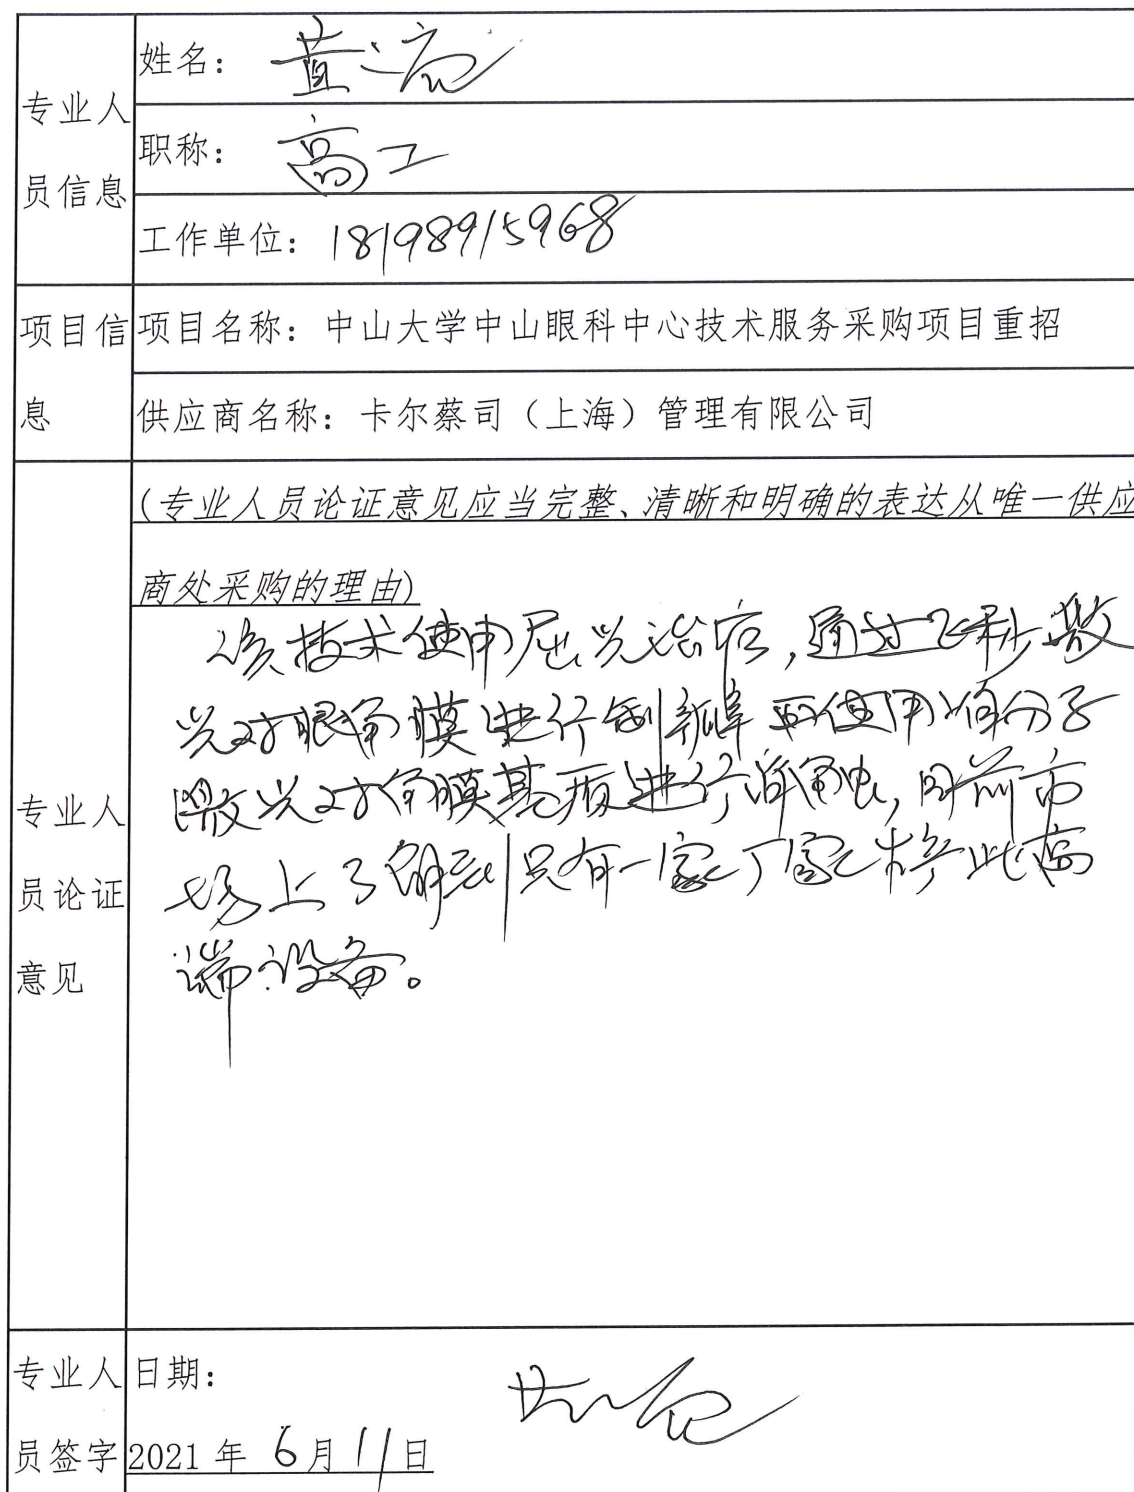 专业人员信息
姓名：黄
职称：高工
工作单位：18198915968
项目信息
项目名称：中山大学中山眼科中心技术服务采购项目重招
供应商名称：卡尔蔡司（上海）管理有限公司
专业人员论证意见
(专业人员论证意见应当完整、清晰和明确的表达从唯一供应
商处采购的理由)
该技术使用屈光治疗，通过飞秒激
光对眼角膜进行制瓣 再使用准分子
激光对角膜基质进行消融，目前市
场上了解到只有一家厂家 此高
端设备。
专业人员签字
日期：
2021 年 6 月 11 日